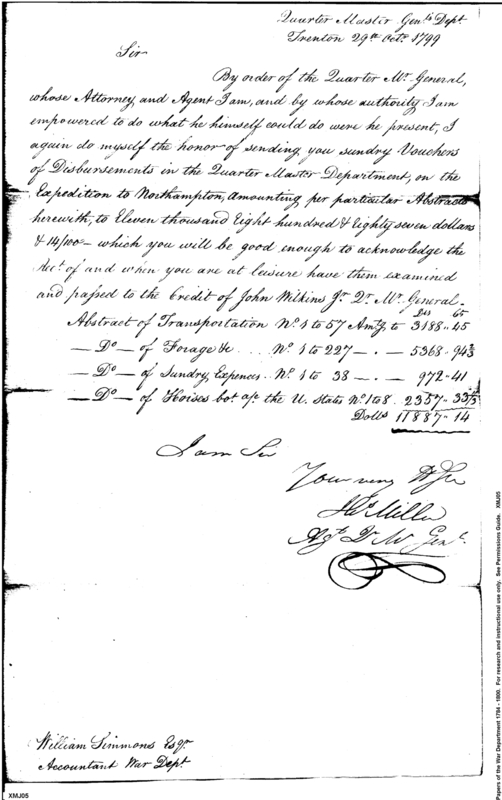 Quarter Master Genls Dept
Trenton 29th Octr. 1799
Sir
By order of the Quarter Mr. General,
whose Attorney, and Agent I am, and by whose authority I am
empowered to do what he himself could do were he present, I
again do myself the honor of sending you sundry Vouchers
of Disbursements in the Quarter Master Department, on the
Expedition to Northampton, Amounting per particular Abstracts
herewith, to Eleven thousand Eight hundred & Eighty seven dollars
& 14/100 – which you will be good enough to acknowledge the
Rect. of and when you are at leisure have them examined
and passed to the Credit of John Wilkins Jr. Qr. Mr. General.
Dlls Cts
Abstract of Transportation No. 1 to 57 Amtg. to 3188.. 45
— Do — of Forage &c ... No. 1 to 227 — . — 5368.. 94⅔
— Do — of Sundry Expences.. No. 1 to 38 — . — 972.. 41
— Do — of Horses bot. a/c the U. States No. 1 to 8. 2357.. 33⅓
Dolls 11887.. 14
I am Sir
Your very
Miller
Agt. Qr. Mr. Genl.
William Simmons Esqr.
Accountant War Dept.
XMJ05
Papers of the War Department 1784 - 1800. For research and instructional use only. See Permissions Guide. XMJ05